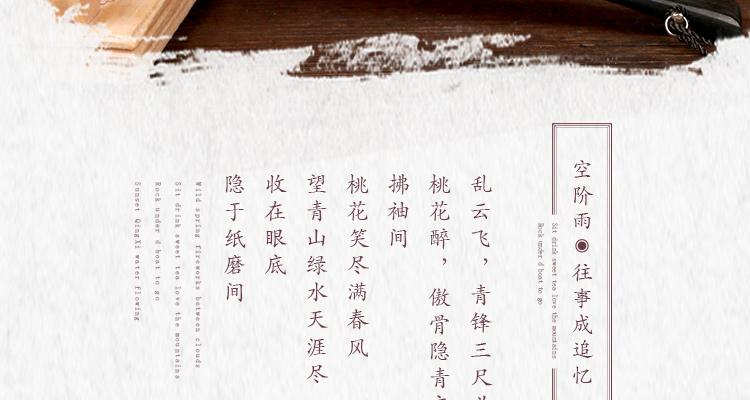 空阶雨◉往事成追忆
Sit drink sweet tea love the mountains
Rock under d boat to go
乱云飞，青锋三尺
桃花醉，傲骨隐青
拂袖间
桃花笑尽满春风
望青山绿水天涯尽
收在眼底
隐于纸磨间
Wild spring fireworks between clouds
Sit drink sweet tea love the mountains
Rock under d boat to go
Sunset QingXi water flowing